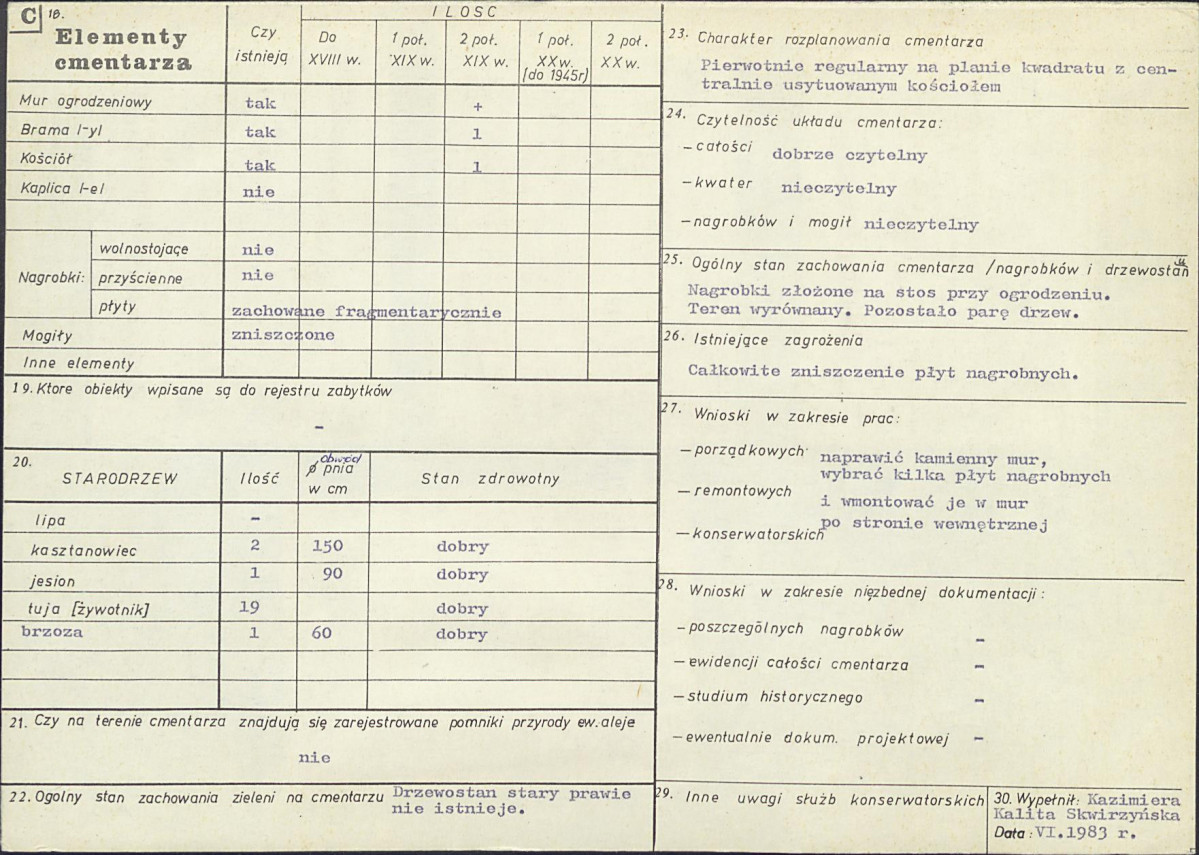 C 18.
Elementy
cmentarza
Czy
istnieją
ILOSC
Do
XVIII w.
1 poł.
XIX w.
2 poł.
XIX w.
1 poł.
XX w.
[do 1945r]
2 poł.
XX w.
Mur ogrodzeniowy tak +
Brama /-y/ tak 1
Kościół tak 1
Kaplica /-e/ nie
Nagrobki: wolnostojące nie
przyścienne nie
płyty zachowane fragmentarycznie
Mogiły zniszczone
Inne elementy
19. Ktore obiekty wpisane są do rejestru zabytków
-
20.
STARODRZEW
Ilość
obwód
ø pnia
w cm
Stan zdrowotny
lipa -
kasztanowiec 2 150 dobry
jesion 1 90 dobry
tuja [żywotnik] 19 dobry
brzoza 1 60 dobry
21. Czy na terenie cmentarza znajdują się zarejestrowane pomniki przyrody ew. aleje
nie
22. Ogolny stan zachowania zieleni na cmentarzu Drzewostan stary prawie
nie istnieje.
23. Charakter rozplanowania cmentarza
Pierwotnie regularny na planie kwadratu z cen-
tralnie usytuowanym kościołem
24. Czytelność układu cmentarza:
- całości dobrze czytelny
- kwater nieczytelny
- nagrobków i mogił nieczytelny
25. Ogólny stan zachowania cmentarza /nagrobków i drzewostan
Nagrobki złożone na stos przy ogrodzeniu.
Teren wyrównany. Pozostało parę drzew.
26. Istniejące zagrożenia
Całkowite zniszczenie płyt nagrobnych.
27. Wnioski w zakresie prac:
- porządkowych naprawić kamienny mur,
wybrać kilka płyt nagrobnych
- remontowych i wmontować je w mur
po stronie wewnętrznej
- konserwatorskich
28. Wnioski w zakresie nięzbednej dokumentacji:
- poszczególnych nagrobków -
- ewidencji całości cmentarza -
- studium historycznego -
- ewentualnie dokum. projektowej -
29. Inne uwagi służb konserwatorskich
30. Wypełnił: Kazimiera
Kalita Skwirzyńska
Data: VI.1983 r.